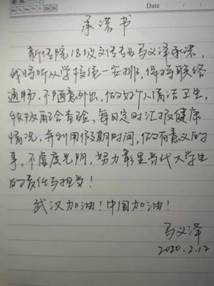 承诺书
新传院18级文传专马义泽承诺,
我将听从学校统一安排,保持联络
通畅,不随意外出,做好个人清洁卫生,
积极配合查验,每日定时汇报健康
情况,并利用假期时间,做有意义的
事,不虚度光阴,努力彰显当代大学生
的责任与担当!
武汉加油!中国加油!
马义泽
2020.2.12